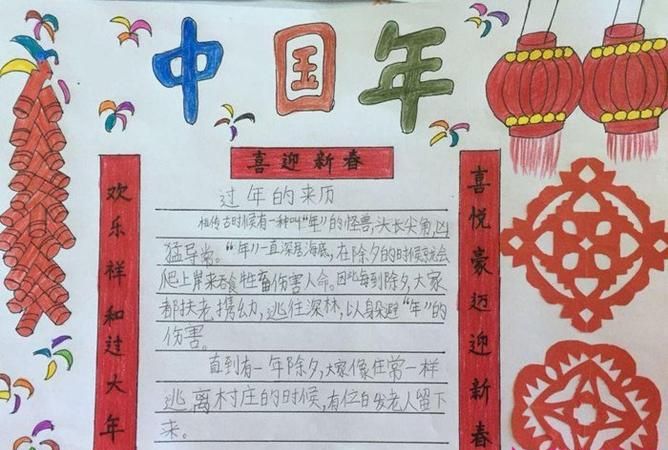 中国年
喜迎新春
欢乐祥和过大年
喜悦豪迈迎新春
过年的来历
相传古时候有一种叫“年”的怪兽,头长尖角,凶
猛导常。“年”一直深居海底,在除夕的时候就会
爬上岸来吞食牲畜伤害人命。因此每到除夕,大家
都扶老携幼,逃往深林,以躲避“年”的
伤害。
直到有一年除夕,大家像往常一样
逃离村庄的时候,有位白发老人留下
来。